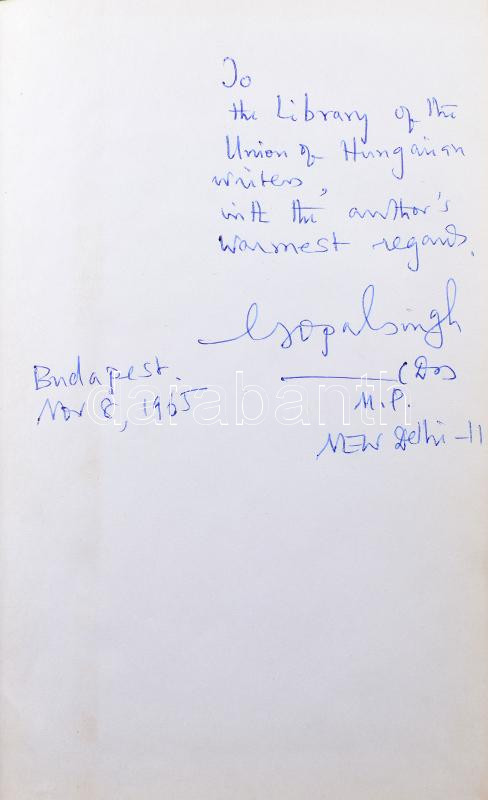 To
the Library of the
Union of Hungarian
writers,
with the author's
warmest regards.
Gopalsingh
(Dr)
M.P.
NEW Delhi-11
Budapest.
Nov 8, 1965
darabanth